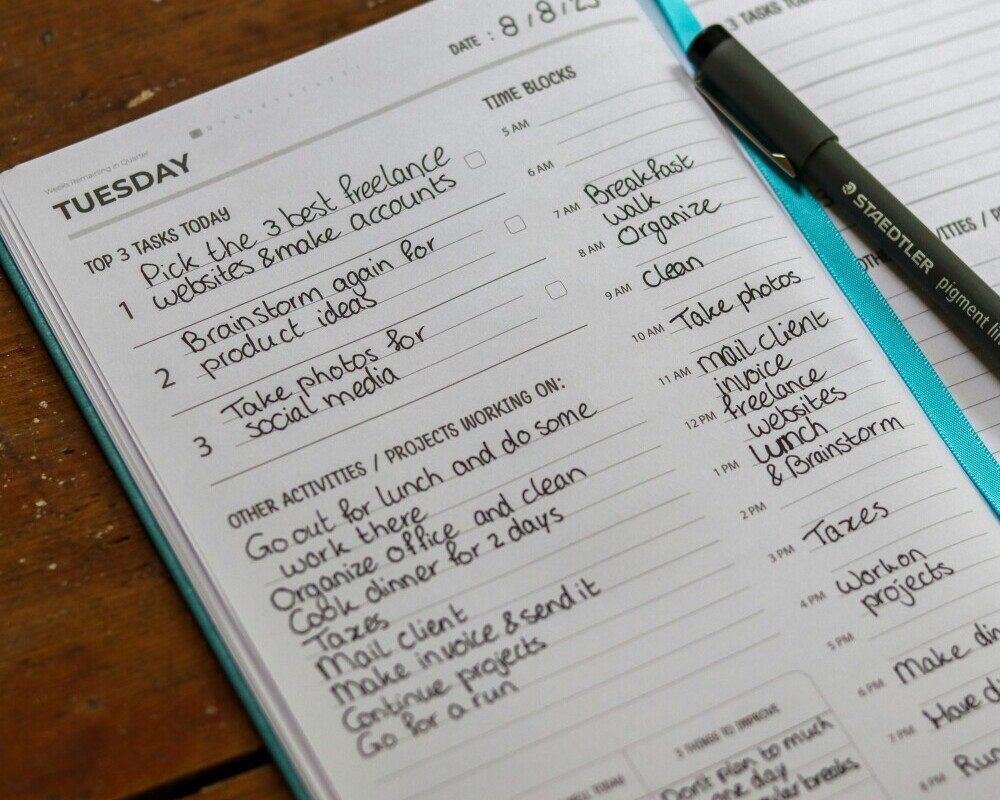 DATE : 8/8/23
Weeks Remaining in Quarter
TUESDAY
TOP 3 TASKS TODAY
1
Pick the 3 best freelance
websites & make accounts
2
Brainstorm again for
product ideas
3
Take photos for
social media
OTHER ACTIVITIES / PROJECTS WORKING ON:
Go out for lunch and do some
work there
Organize office and clean
Cook dinner for 2 days
Taxes
Mail client
Make invoice & send it
Continue projects
Go for a run
TIME BLOCKS
5 AM
6 AM
7 AM Breakfast
walk
8 AM Organize
9 AM Clean
10 AM Take photos
11 AM mail client
invoice
12 PM freelance
websites
1 PM lunch
& Brainstorm
2 PM
3 PM Taxes
4 PM work on
projects
5 PM
6 PM Make
7 PM Have
8 PM Run
3 THINGS TO IMPROVE
Don't plan to much
one day
breaks
TODAY
3 TASKS
STAEDTLER
pigment